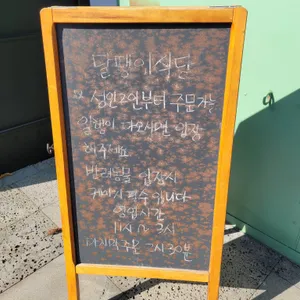 달팽이식당
성인 2인부터 주문가능
일행이 다 오시면 입장
해주세요
반려동물 입장시
케이지 필수 입니다
영업시간
11시 ~ 3시
마지막 주문 2시 30분